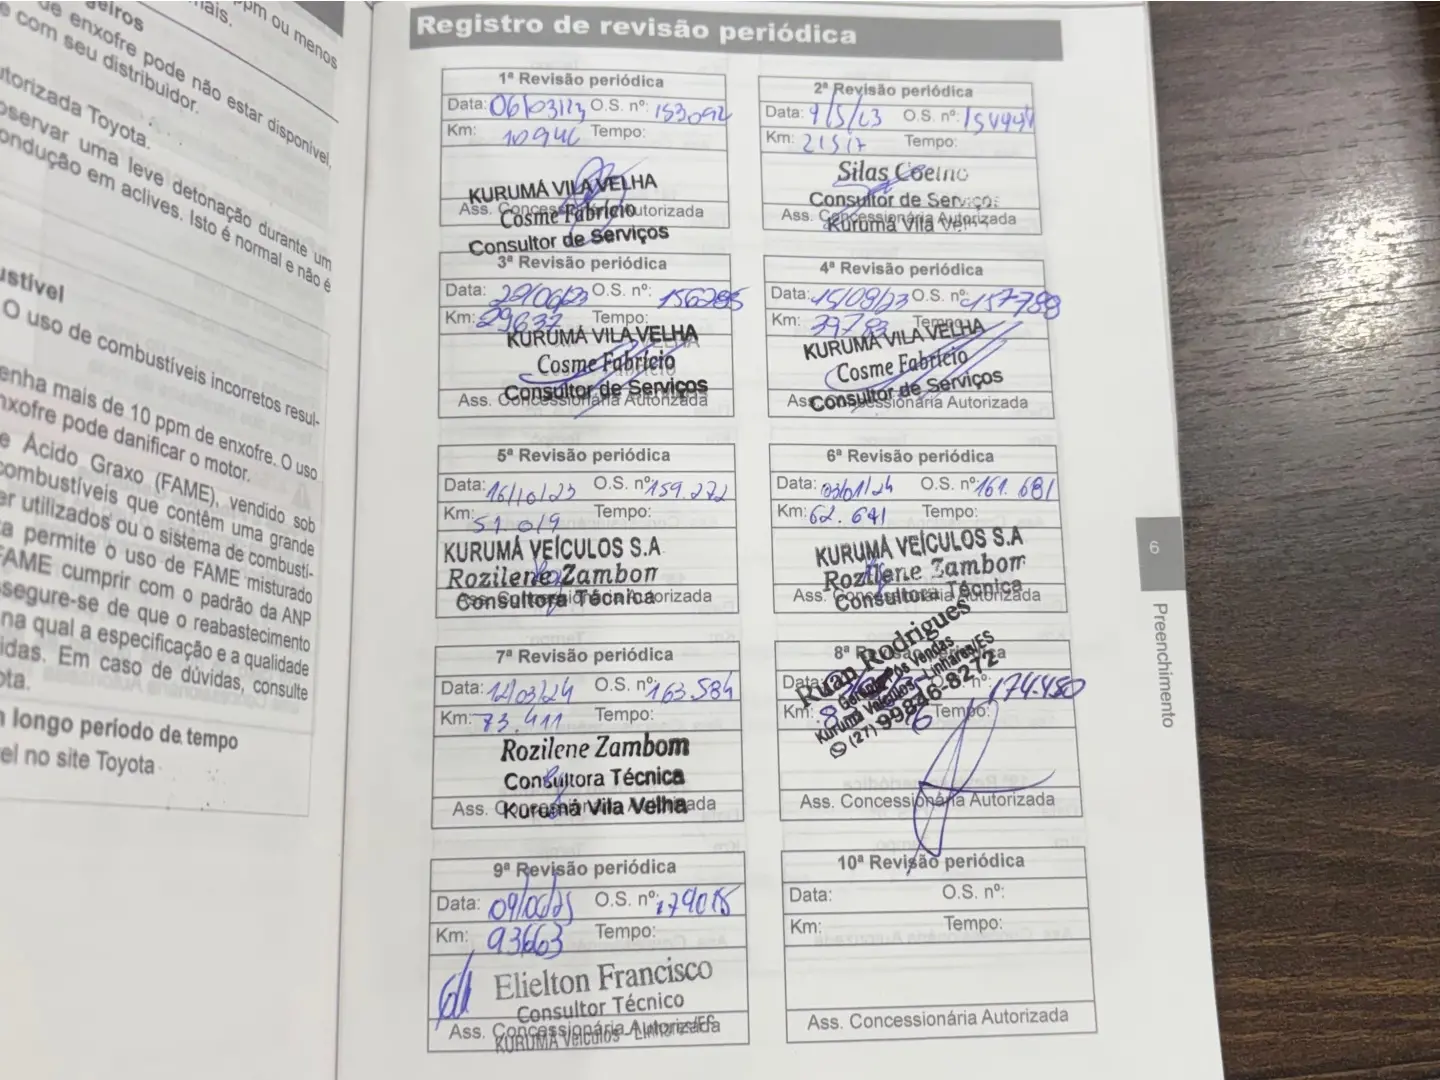 eiros
nais.
ppm ou menos
de enxofre pode não estar disponível,
e com seu distribuidor.
utorizada Toyota.
bservar uma leve detonação durante um
ondução em aclives. Isto é normal e não é
ustível
O uso de combustíveis incorretos resul-
enha mais de 10 ppm de enxofre. O uso
nxofre pode danificar o motor.
e Ácido Graxo (FAME), vendido sob
combustíveis que contêm uma grande
er utilizados ou o sistema de combustí-
ta permite o uso de FAME misturado
FAME cumprir com o padrão da ANP
segure-se de que o reabastecimento
na qual a especificação e a qualidade
idas. Em caso de dúvidas, consulte
ota.
n longo período de tempo
el no site Toyota
Registro de revisão periódica
1ª Revisão periódica
Data: 06/03/23 O.S. nº: 153092
Km: 10946 Tempo:
KURUMÁ VILA VELHA
Cosme Fabrício
Ass. Concessionária Autorizada
Consultor de Serviços
2ª Revisão periódica
Data: 9/5/23 O.S. nº:
Km: 21517 Tempo:
Silas Coelho
Consultor de Serviços
Ass. Concessionária Autorizada
Kurumá Vila Ve
3ª Revisão periódica
Data: 29/06/23 O.S. nº: 156285
Km: 29637 Tempo:
KURUMÁ VILA VELHA
Cosme Fabrício
Consultor de Serviços
Ass. Concessionária Autorizada
4ª Revisão periódica
Data: 15/09/23 O.S. nº: 157-788
Km: 39783 Tempo:
KURUMÁ VILA VELHA
Cosme Fabrício
Consultor de Serviços
Ass. Concessionária Autorizada
5ª Revisão periódica
Data: 16/10/23 O.S. nº: 159.272
Km: 51.019 Tempo:
KURUMÁ VEÍCULOS S.A
Rozilene Zambom
Consultora Técnica
Ass. Concessionária Autorizada
6ª Revisão periódica
Data: 03/01/24 O.S. nº: 161.681
Km: 62.641 Tempo:
KURUMÁ VEÍCULOS S.A
Rozilene Zambom
Consultora Técnica
Ass. Concessionária Autorizada
7ª Revisão periódica
Data: 14/03/24 O.S. nº: 163.584
Km: 73.411 Tempo:
Rozilene Zambom
Consultora Técnica
Ass. Concessionária Autorizada
Kurumá Vila Velha
8ª Revisão periódica
Data: O.S. nº: 174.450
Km: Tempo:
Ruan Rodrigues
Gerente Pós Vendas
Kurumá Veículos - Linhares/ES
(27) 99846-8272
Ass. Concessionária Autorizada
9ª Revisão periódica
Data: 09/06/25 O.S. nº: 179015
Km: 93663 Tempo:
Elielton Francisco
Consultor Técnico
Ass. Concessionária Autorizada
KURUMÁ Veículos - Linhares/ES
10ª Revisão periódica
Data: O.S. nº:
Km: Tempo:
Ass. Concessionária Autorizada
6
Preenchimento